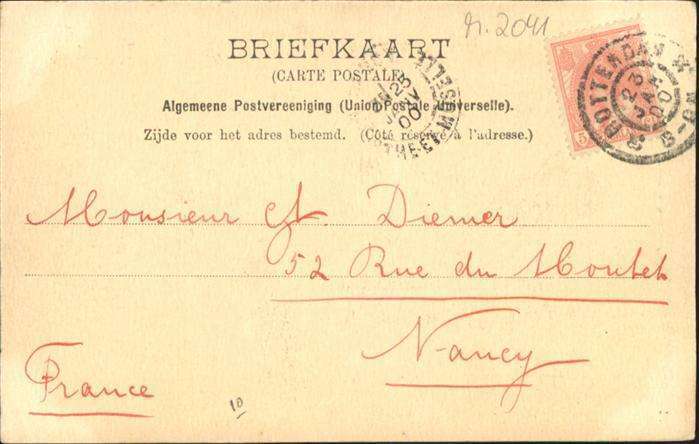 n. 2041
BRIEFKAART
(CARTE POSTALE)
Algemeene Postvereeniging (Union Postale Universelle).
Zijde voor het adres bestemd. (Côté réservé à l'adresse.)
ROTTERDAM
23
JAN
00
8-9
25
00
5
Monsieur Diemer
52 Rue du Montet
Nancy
France
10